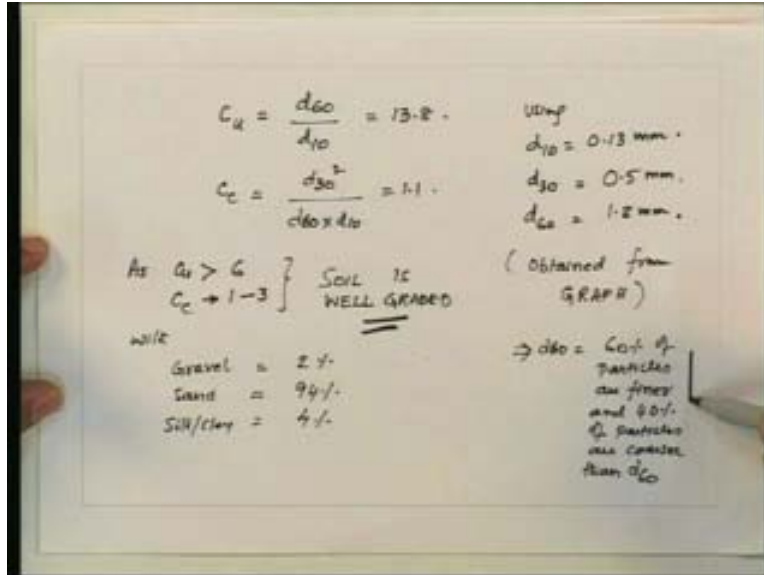 Cu = d60 / d10 = 13.8.
Cc = d30² / d60 x d10 = 1.1.
As Cu > 6
Cc → 1-3 } SOIL IS WELL GRADED
with
Gravel = 2 %.
Sand = 94 %.
Silt/Clay = 4 %.
Using
d10 = 0.13 mm.
d30 = 0.5 mm.
d60 = 1.8 mm.
(Obtained from
GRAPH)
⇒ d60 = 60% of
particles
are finer
and 40%
of particles
are coarser
than d60